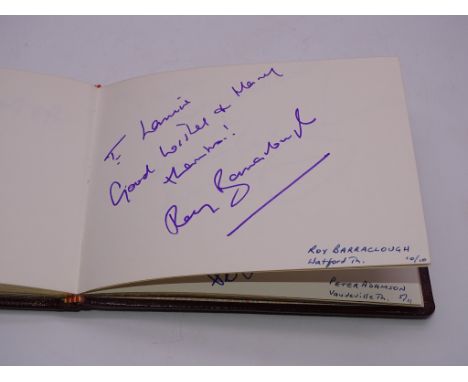 To Laurie
Good wishes & Many
thanks!!
Roy Barraclough
ROY BARRACLOUGH
Watford Th. 10/10
PETER ADAMSON
Vaudeville Th. 5/11